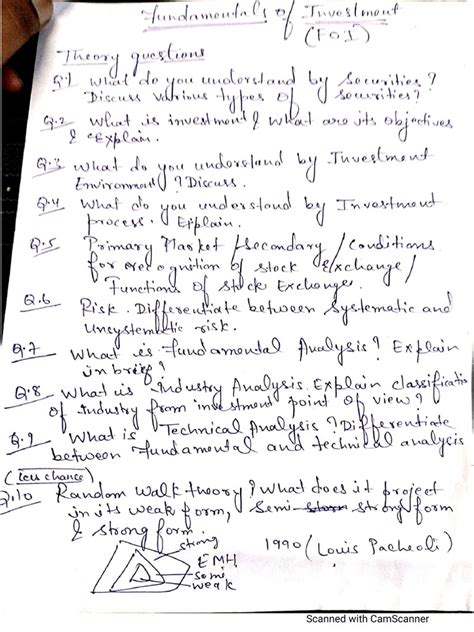 Fundamentals of Investment
(F.O.I)
Theory questions
Q.1 What do you understand by Securities?
Discuss various types of securities?
Q.2 What is investment & what are its objectives
& Explain.
Q.3 What do you understand by Investment
Environment? Discuss.
Q.4 What do you understand by Investment
process. Explain.
Q.5 Primary Market / Secondary / Conditions
for recognition of stock Exchange /
Functions of Stock Exchange.
Q.6 Risk. Differentiate between Systematic and
Unsystematic risk.
Q.7 What is Fundamental Analysis? Explain
in brief?
Q.8 What is Industry Analysis. Explain classificatio
of industry from investment point of view?
Q.9 What is Technical Analysis? Differentiate
between fundamental and technical analysis
(less chance)
Q.10 Random walk theory? What does it project
in its weak form, Semi strong form
& strong form.
strong
EMH
semi
weak
1990 (Louis Pacheoli)
Scanned with CamScanner